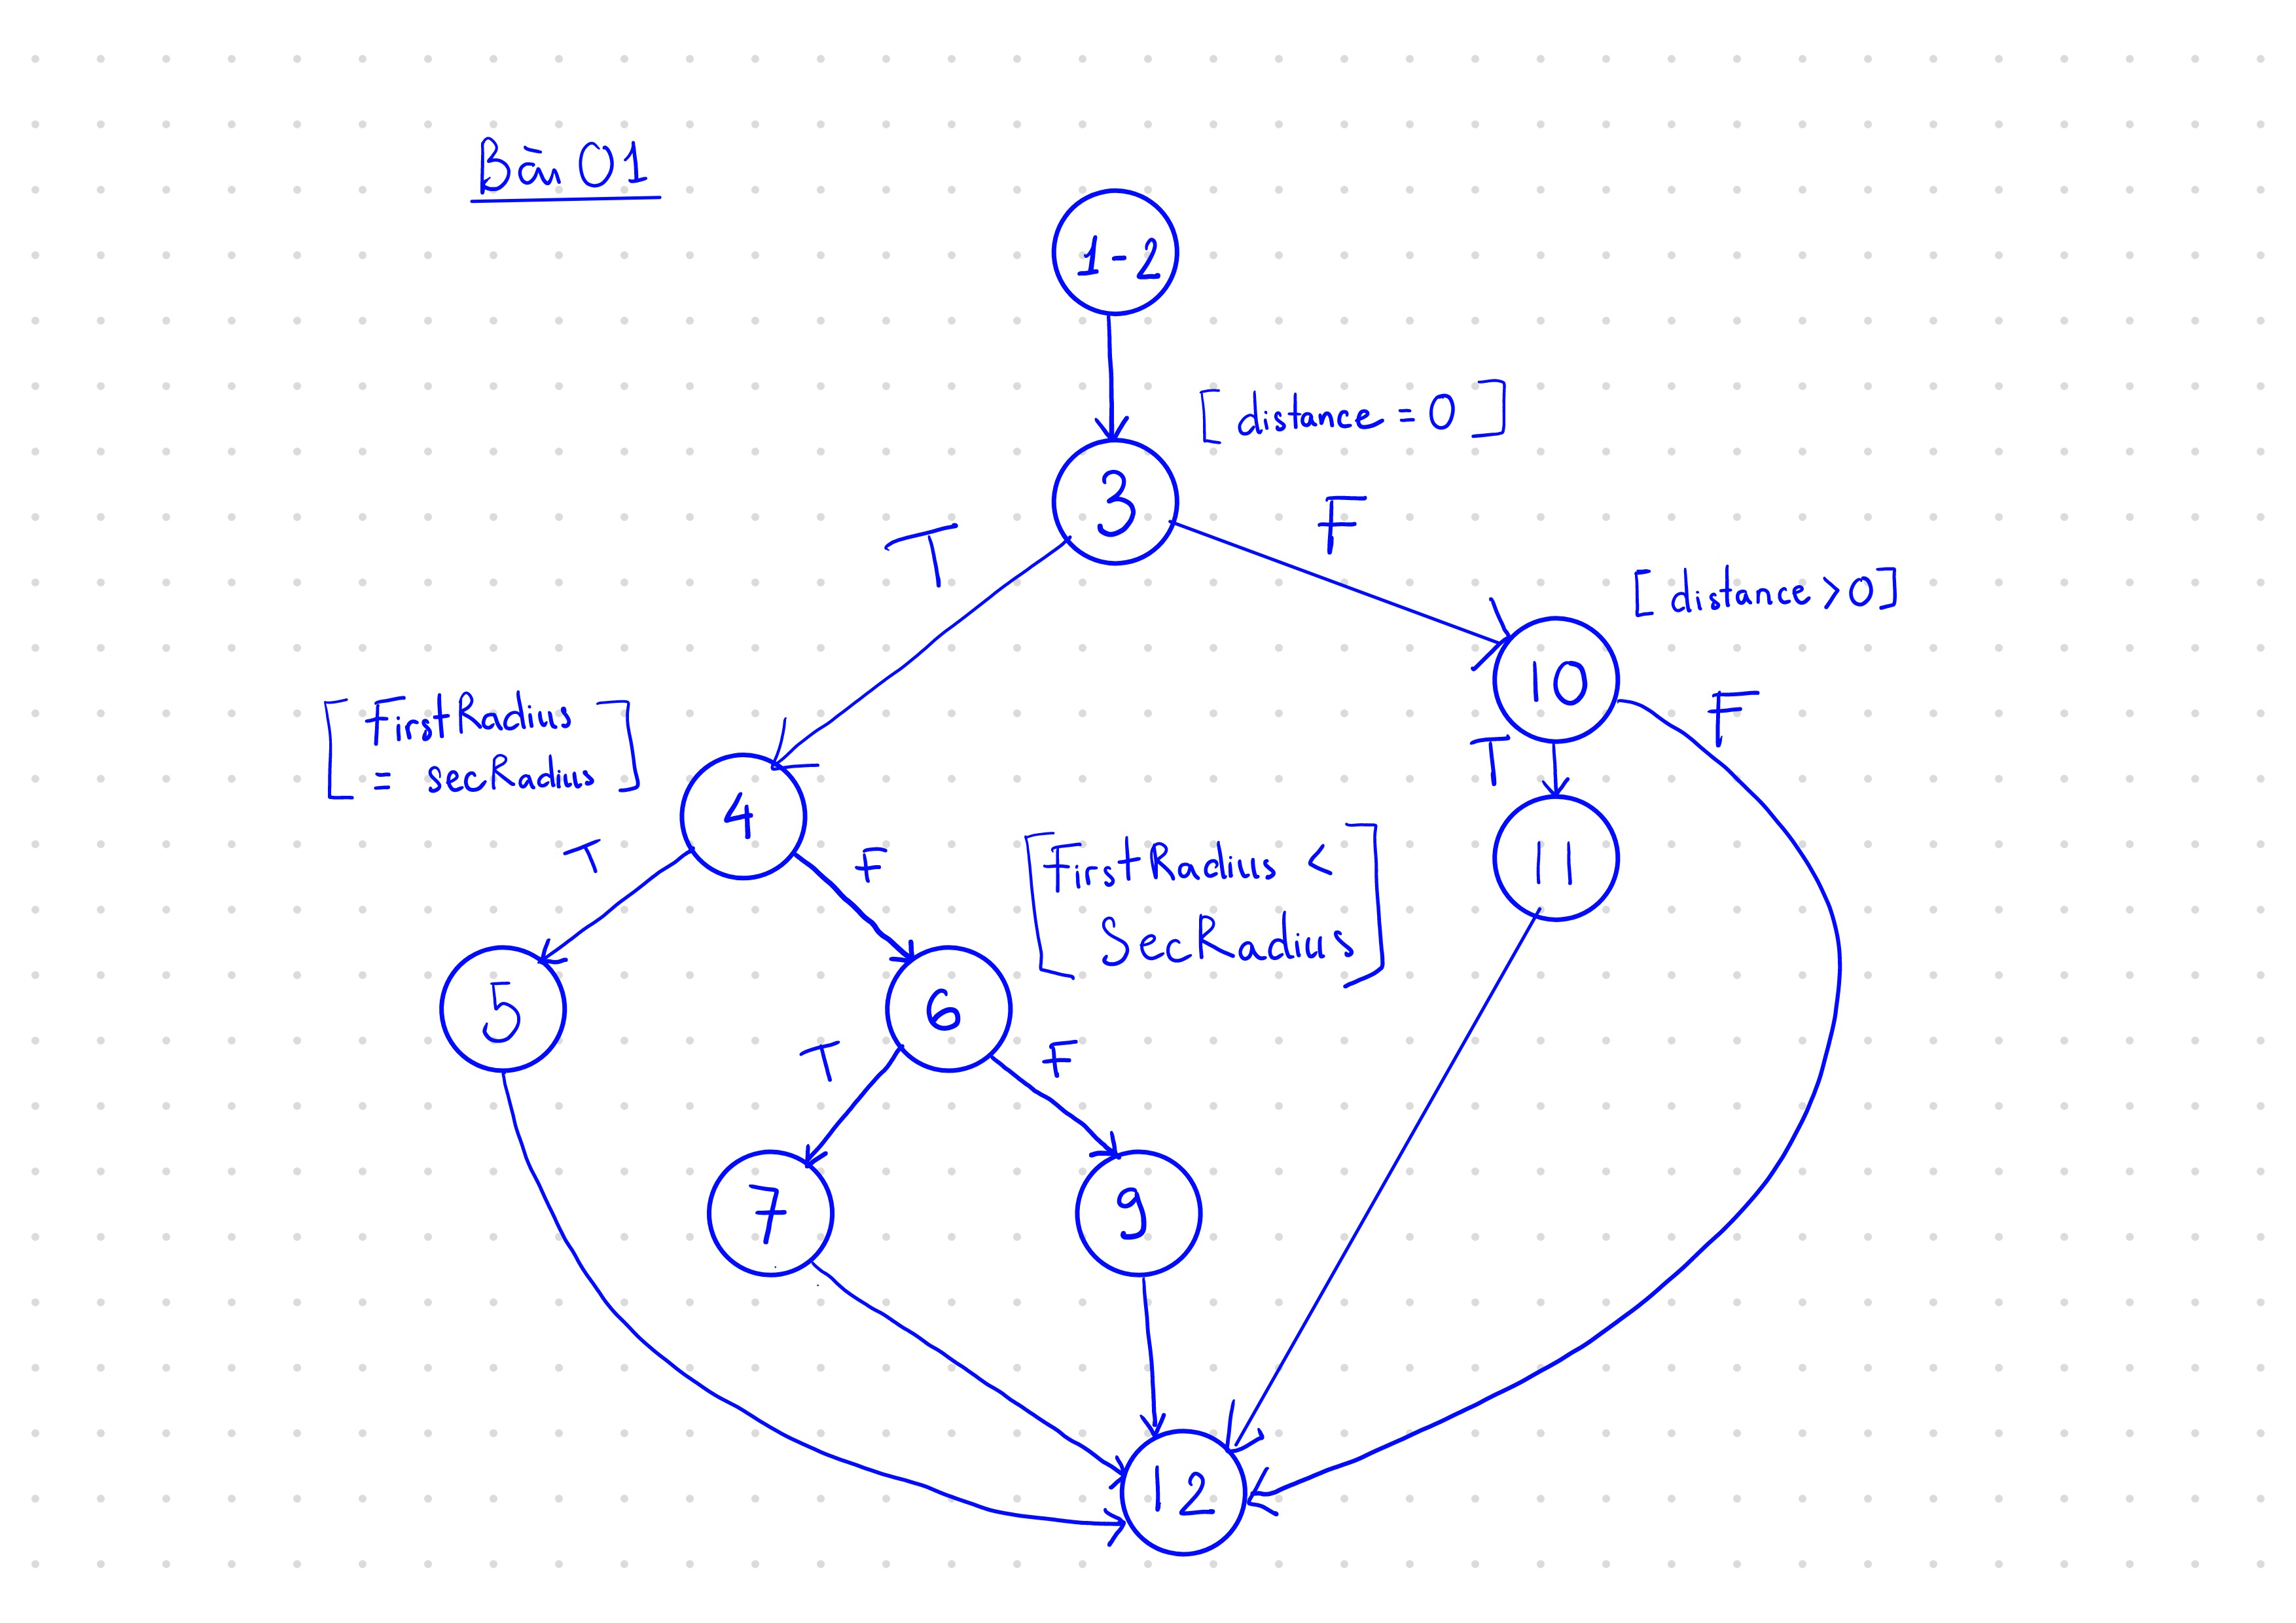 Bài 01
1-2
[ distance = 0 ]
3
T
F
[ distance > 0 ]
10
F
T
[ FirstRadius
= secRadius ]
4
11
T
F
[ FirstRadius <
SecRadius ]
5
6
T
F
7
9
12